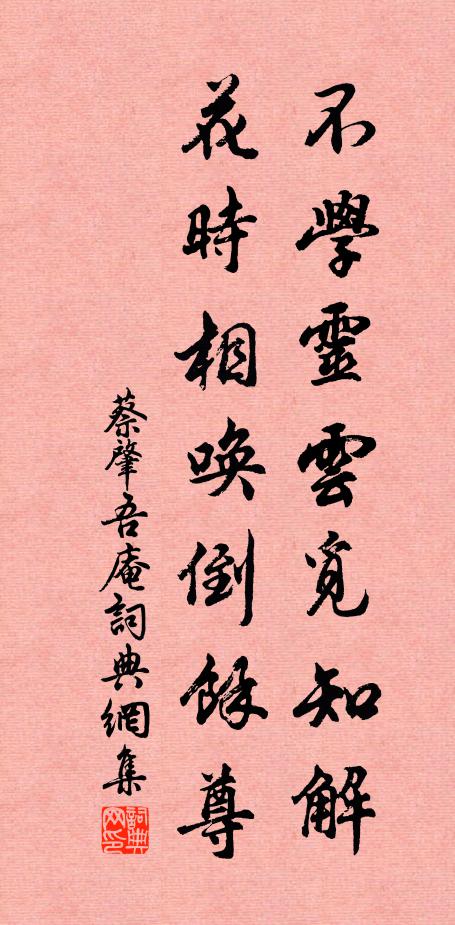 不學靈雲覓知解
花時相喚倒餘尊
蔡肇吾庵詞典網集
詞典网印